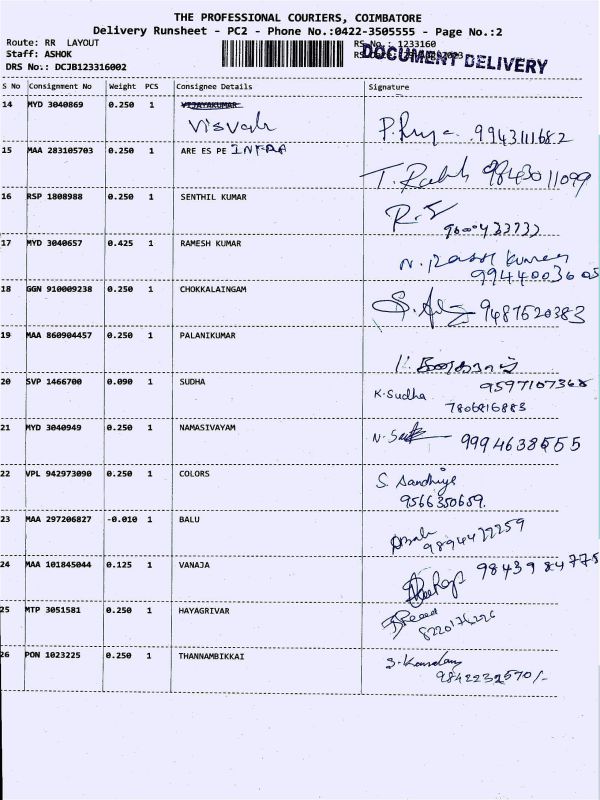 THE PROFESSIONAL COURIERS, COIMBATORE
Delivery Runsheet - PC2 - Phone No.:0422-3505555 - Page No.:2
Route: RR LAYOUT RS No.: 1233160
Staff: ASHOK DOCUMENT DELIVERY
DRS No.: DCJB123316002
S No Consignment No Weight PCS Consignee Details Signature
14 MYD 3040869 0.250 1 VIJAYAKUMAR
Visvak P. Priya 9943111682
15 MAA 283105703 0.250 1 ARE ES PE INFRA
9843011099
16 RSP 1808988 0.250 1 SENTHIL KUMAR
17 MYD 3040657 0.425 1 RAMESH KUMAR
9944003605
18 GGN 910009238 0.250 1 CHOKKALAINGAM
9487620383
19 MAA 860904457 0.250 1 PALANIKUMAR
9597107368
20 SVP 1466700 0.090 1 SUDHA
K. Sudha
7806816883
21 MYD 3040949 0.250 1 NAMASIVAYAM
9994638555
22 VPL 942973090 0.250 1 COLORS
S. Sandhiya
9566350659.
23 MAA 297206827 -0.010 1 BALU
Balu 9894422259
24 MAA 101845044 0.125 1 VANAJA
9843984775
25 MTP 3051581 0.250 1 HAYAGRIVAR
8220176226
26 PON 1023225 0.250 1 THANNAMBIKKAI
9842232570/-